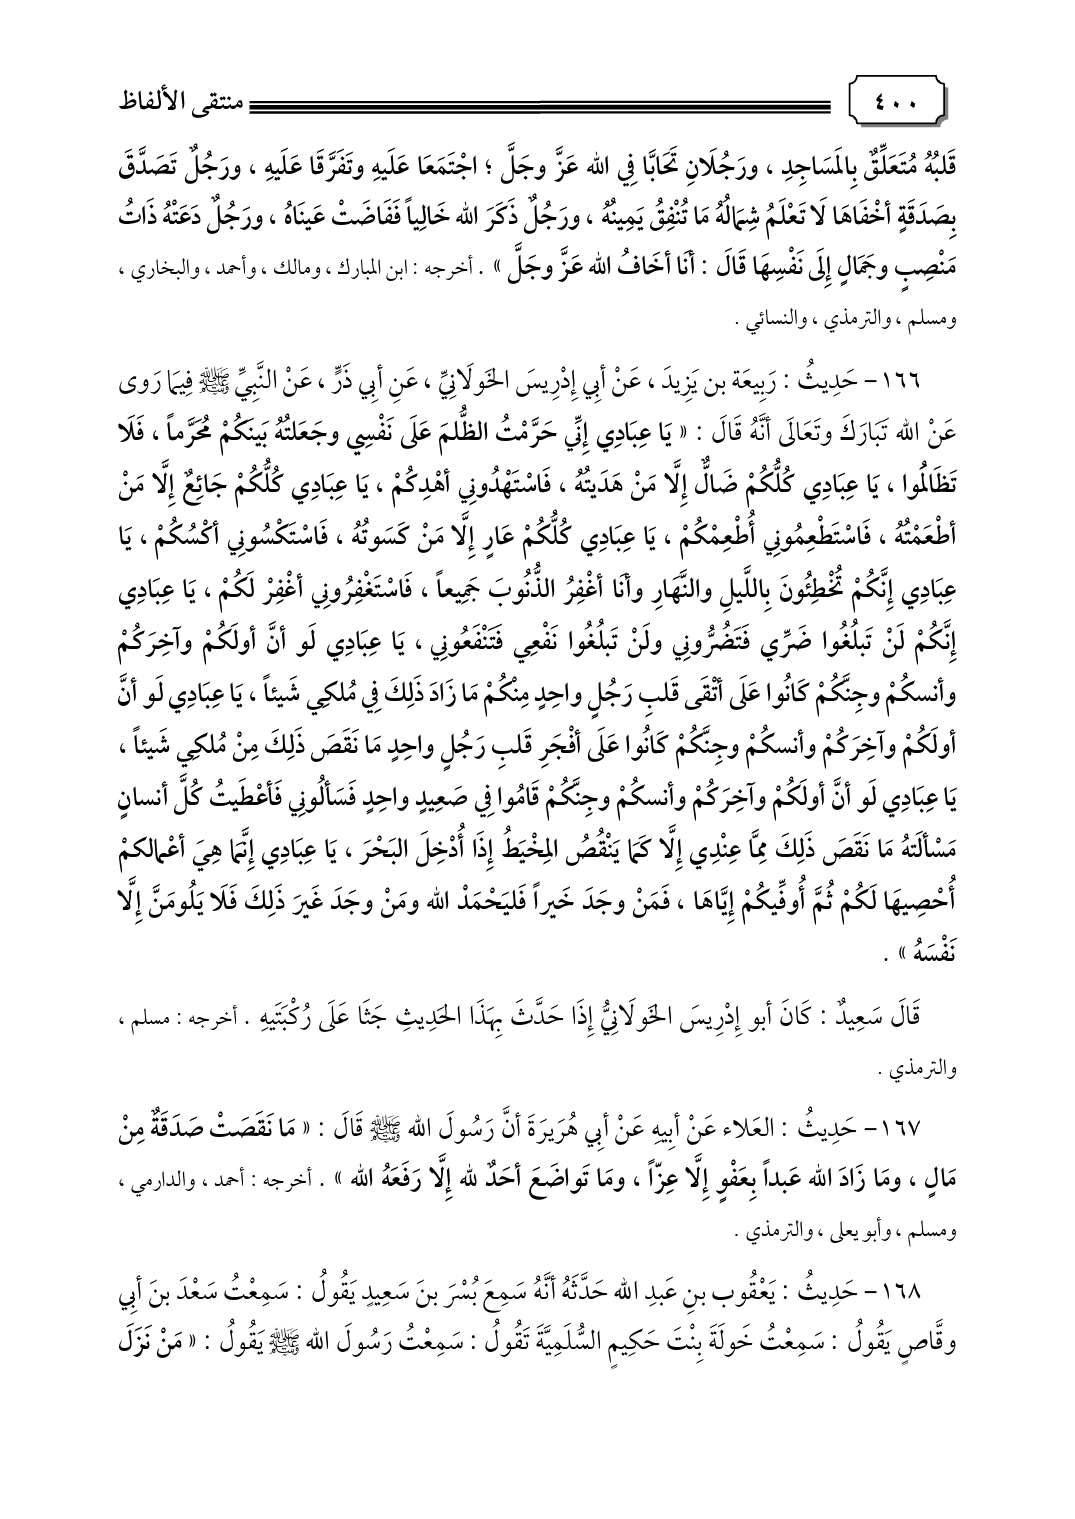 ٤٠٠
منتقى الألفاظ
قَلبُهُ مُتَعَلِّقٌ بِالمَسَاجِدِ ، ورَجُلَانِ تَحَابَّا فِي الله عَزَّ وجَلَّ ؛ اجْتَمَعَا عَلَيهِ وتَفَرَّقَا عَلَيهِ ، ورَجُلٌ تَصَدَّقَ
بِصَدَقَةٍ أخْفَاهَا لَا تَعْلَمُ شِمَالُهُ مَا تُنْفِقُ يَمِينُهُ ، ورَجُلٌ ذَكَرَ الله خَالِياً فَفَاضَتْ عَينَاهُ ، ورَجُلٌ دَعَتْهُ ذَاتُ
مَنْصِبٍ وجَمَالٍ إِلَى نَفْسِهَا قَالَ : أنَا أخَافُ الله عَزَّ وجَلَّ » . أخرجه : ابن المبارك ، ومالك ، وأحمد ، والبخاري ،
ومسلم ، والترمذي ، والنسائي .
١٦٦- حَدِيثُ : رَبِيعَة بن يَزِيدَ ، عَنْ أبِي إدْرِيسَ الخَولَانِيِّ ، عَنِ أبِي ذَرٍّ ، عَنْ النَّبِيِّ ﷺ فِيمَا رَوى
عَنْ الله تَبَارَكَ وتَعَالَى أنَّهُ قَالَ : « يَا عِبَادِي إنِّي حَرَّمْتُ الظُّلمَ عَلَى نَفْسِي وجَعَلتُهُ بَينَكُمْ مُحَرَّماً ، فَلَا
تَظَالَمُوا ، يَا عِبَادِي كُلُّكُمْ ضَالٌّ إِلَّا مَنْ هَدَيتُهُ ، فَاسْتَهْدُونِي أهْدِكُمْ ، يَا عِبَادِي كُلُّكُمْ جَائِعٌ إِلَّا مَنْ
أطْعَمْتُهُ ، فَاسْتَطْعِمُونِي أُطْعِمْكُمْ ، يَا عِبَادِي كُلُّكُمْ عَارٍ إِلَّا مَنْ كَسَوتُهُ ، فَاسْتَكْسُونِي أكْسُكُمْ ، يَا
عِبَادِي إِنَّكُمْ تُخْطِئُونَ بِاللَّيلِ والنَّهَارِ وأنَا أغْفِرُ الذُّنُوبَ جَمِيعاً ، فَاسْتَغْفِرُونِي أغْفِرْ لَكُمْ ، يَا عِبَادِي
إنَّكُمْ لَنْ تَبلُغُوا ضَرِّي فَتَضُرُّونِي ولَنْ تَبلُغُوا نَفْعِي فَتَنْفَعُونِي ، يَا عِبَادِي لَو أنَّ أولَكُمْ وآخِرَكُمْ
وأنسكُمْ وجِنَّكُمْ كَانُوا عَلَى أتْقَى قَلبِ رَجُلٍ واحِدٍ مِنْكُمْ مَا زَادَ ذَلِكَ فِي مُلكِي شَيئاً ، يَا عِبَادِي لَو أنَّ
أولَكُمْ وآخِرَكُمْ وأنسكُمْ وجِنَّكُمْ كَانُوا عَلَى أفْجَرِ قَلبِ رَجُلٍ واحِدٍ مَا نَقَصَ ذَلِكَ مِنْ مُلكِي شَيئاً ،
يَا عِبَادِي لَو أنَّ أولَكُمْ وآخِرَكُمْ وأنسكُمْ وجِنَّكُمْ قَامُوا فِي صَعِيدٍ واحِدٍ فَسَألُونِي فَأعْطَيتُ كُلَّ أنسانٍ
مَسْألَتهُ مَا نَقَصَ ذَلِكَ مِمَّا عِنْدِي إِلَّا كَمَا يَنْقُصُ المِخْيَطُ إذَا أُدْخِلَ البَحْرَ ، يَا عِبَادِي إنَّمَا هِيَ أعْمالكمْ
أُحْصِيهَا لَكُمْ ثُمَّ أُوفِّيكُمْ إيَّاهَا ، فَمَنْ وجَدَ خَيراً فَليَحْمَدْ الله ومَنْ وجَدَ غَيرَ ذَلِكَ فَلَا يَلُومَنَّ إِلَّا
نَفْسَهُ » .
قَالَ سَعِيدٌ : كَانَ أبو إدْرِيسَ الخَولَانِيُّ إذَا حَدَّثَ بِهَذَا الحَدِيثِ جَثَا عَلَى رُكْبَتَيهِ . أخرجه : مسلم ،
والترمذي .
١٦٧- حَدِيثُ : العَلاء عَنْ أبِيهِ عَنْ أبِي هُرَيرَةَ أنَّ رَسُولَ الله ﷺ قَالَ : « مَا نَقَصَتْ صَدَقَةٌ مِنْ
مَالٍ ، ومَا زَادَ الله عَبداً بِعَفْوٍ إِلَّا عِزّاً ، ومَا تَواضَعَ أحَدٌ لله إِلَّا رَفَعَهُ الله » . أخرجه : أحمد ، والدارمي ،
ومسلم ، وأبو يعلى ، والترمذي .
١٦٨- حَدِيثُ : يَعْقُوب بنِ عَبدِ الله حَدَّثَهُ أنَّهُ سَمِعَ بُسْرَ بنَ سَعِيدٍ يَقُولُ : سَمِعْتُ سَعْدَ بنَ أبِي
وقَّاصٍ يَقُولُ : سَمِعْتُ خَولَةَ بِنْتَ حَكِيمٍ السُّلَمِيَّةَ تَقُولُ : سَمِعْتُ رَسُولَ الله ﷺ يَقُولُ : « مَنْ نَزَلَ